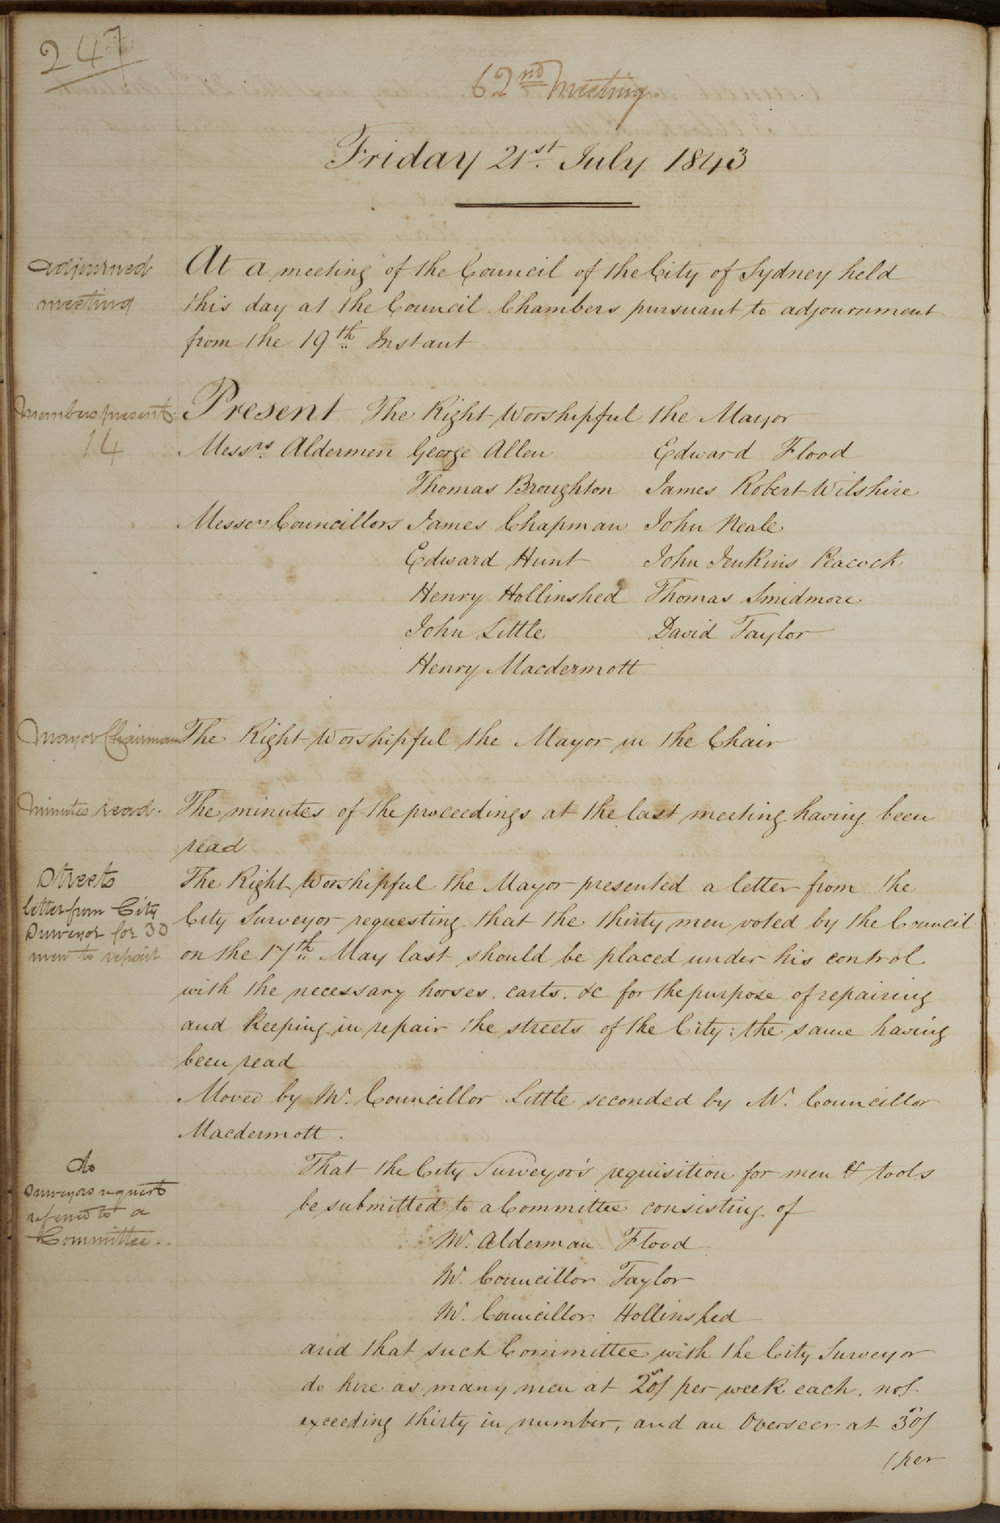 247
62nd Meeting
Friday 21st July 1843
adjourned
meeting
At a meeting of the Council of the City of Sydney held
this day at the Council Chambers pursuant to adjournment
from the 19th Instant
Members present
14
Present The Right Worshipful the Mayor
Messrs Aldermen George Allen Edward Flood
Thomas Broughton James Robert Wilshire
Messrs Councillors James Chapman John Neale
Edward Hunt John Jenkins Peacock
Henry Hollinshed Thomas Smidmore
John Little David Taylor
Henry Macdermott
Mayor Chairman
The Right Worshipful the Mayor in the Chair
Minutes read.
The minutes of the proceedings at the last meeting having been
read
Streets
letter from City
Surveyor for 30
men to repair
The Right Worshipful the Mayor presented a letter from the
City Surveyor requesting that the thirty men voted by the Council
on the 17th May last should be placed under his control
with the necessary horses, carts, &c for the purpose of repairing
and keeping in repair the streets of the City: the same having
been read
Moved by Mr. Councillor Little seconded by Mr. Councillor
Macdermott.
do
Surveyors request
referred to a
Committee.
That the City Surveyor's requisition for men & tools
be submitted to a Committee consisting of
Mr. Alderman Flood
Mr. Councillor Taylor
Mr. Councillor Hollinshed
and that such Committee with the City Surveyor
do hire as many men at 20s/ per week each, not
exceeding thirty in number, and an Overseer at 30s/
/per